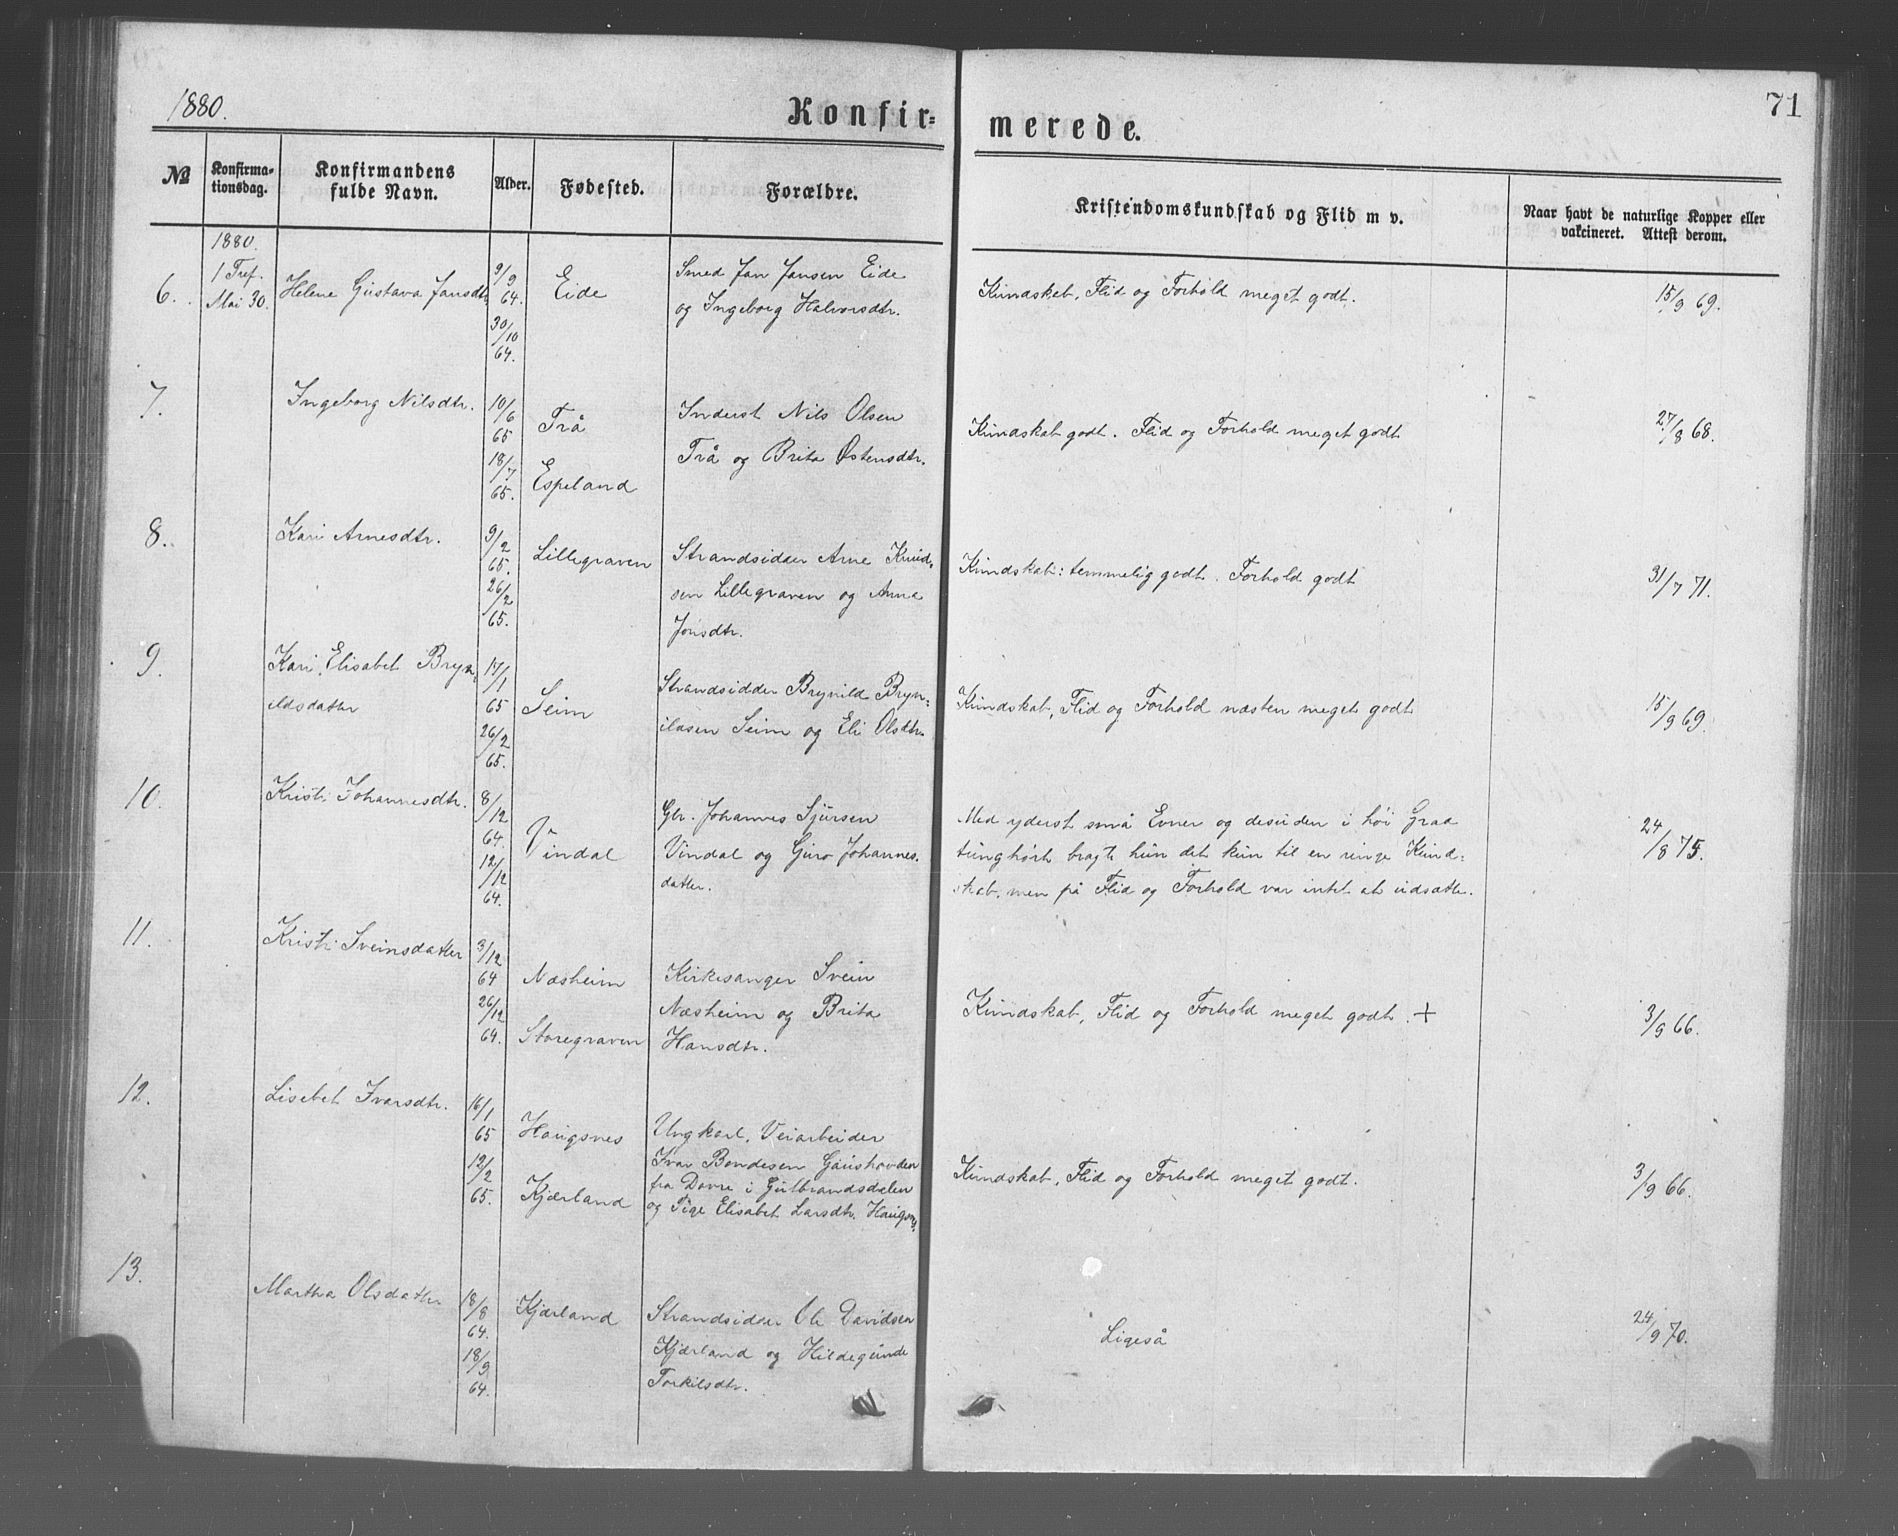 1880.
Konfir=
merede.
71
No
Konfirma-
tionsdag.
Konfirmandens
fulde Navn.
Alder.
Fødested.
Forældre.
Kristendomskundskab og Flid m v.
Naar havt de naturlige Kopper eller
vakcineret. Attest derom.
6.
1880.
1 Tref.
Mai 30.
Helene Gustava Jansdtr
9/9
64.
30/10
64.
Eide
Smed Jan Jansen Eide
og Ingeborg Halvorsdtr.
Kundskab, Flid og Forhold meget godt.
15/9 69.
7.
Ingeborg Nilsdtr.
10/6
65
18/7
65.
Trå
Espeland
Inderst Nils Olsen
Trå og Brita Østensdtr.
Kundskab godt. Flid og Forhold meget godt
27/8 68.
8.
Kari Arnesdtr.
9/2
65.
26/2
65.
Lillegraven
Strandsidder Arne Knud-
sen Lillegraven og Anna
Jonsdtr.
Kundskab: temmelig godt. Forhold godt
31/7 71.
9.
Kari Elisabet Bryn-
ildsdatter
17/1
65
26/2
65.
Seim
Strandsidder Brynild Bryn=
ildsen Seim og Eli Olsdtr.
Kundskab, Flid og Forhold næsten meget godt
15/9 69.
10.
Kristi Johannesdtr.
8/12
64.
12/12
64.
Vindal
Gbr. Johannes Sjursen
Vindal og Guro Johannes-
datter.
Med yderst små Evner og desuden i høi Grad
tunghørt bragte hun det kun til en ringe Kund=
skab, men på Flid og Forhold var intet at udsætte.
24/8 75.
11.
Kristi Sveinsdatter
3/12
64
26/12
64.
Næsheim
Storegraven
Kirkesanger Svein
Næsheim og Brita
Hansdtr.
Kundskab, Flid og Forhold meget godt. +
3/9 66.
12.
Lisebet Ivarsdtr.
16/1
65
12/2
65.
Haugsnes
Kjærland
Ungkarl, Veiarbeider
Ivar Bondesen Gaustad
fra Dovre i Gulbrandsdalen
og Pige Elisabet Larsdtr. Haugsnes
Kundskab, Flid og Forhold meget godt.
3/9 66.
13.
Martha Olsdatter
18/8
64.
18/9
64.
Kjærland
Strandsidder Ole Davidsen
Kjærland og Hildegunde
Torkilsdtr.
Ligeså
24/9 70.